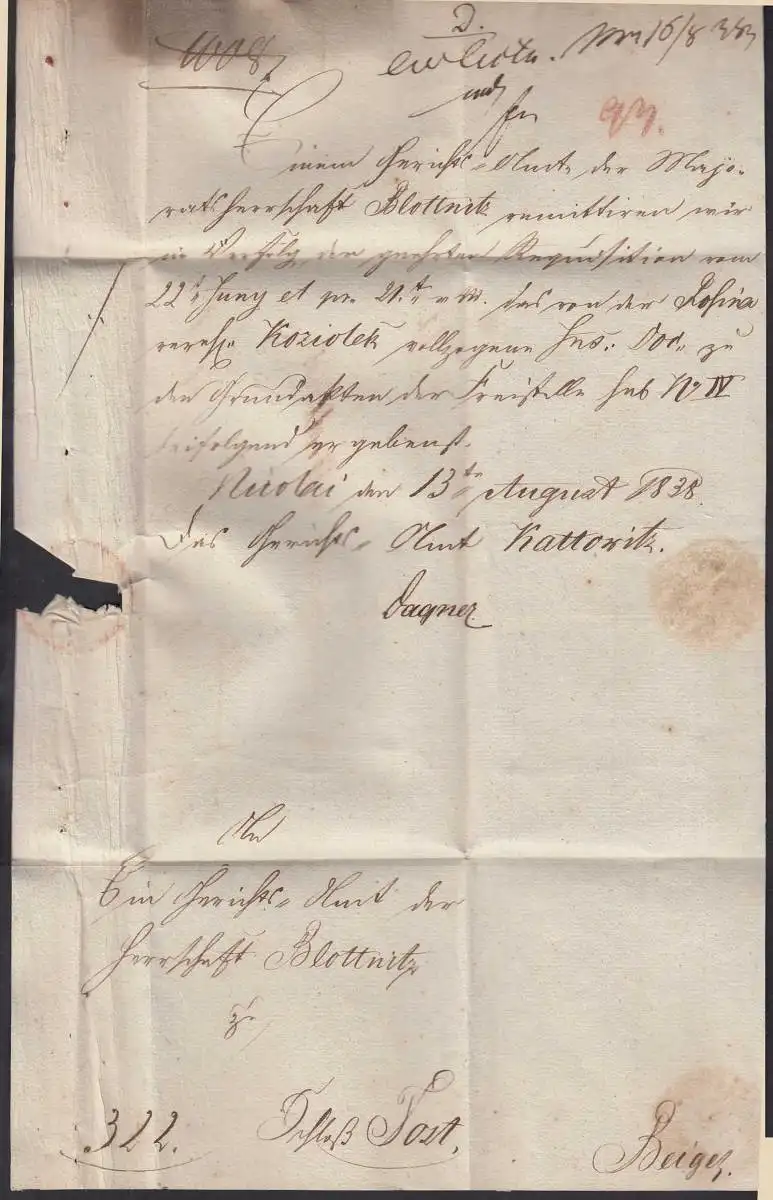 1008
D.
16/8 38
Einem Gerichts-Amte der Majo-
ratsherrschaft Blottnitz remittiren wir
in Verfolg der geehrten Requisition vom
22t Juny et pr. 21.t v. M. das von der Rosina
vereh. Koziolek vollzogene Ins: Doc. zu
den Grundakten der Freistelle sub No IV
beifolgend ergebenst.
Nicolai den 13te August 1838.
Das Gerichts-Amt Kattowitz.
An
Ein Gerichts-Amt der
Herrschaft Blottnitz
zu
322. Schloß Tost.